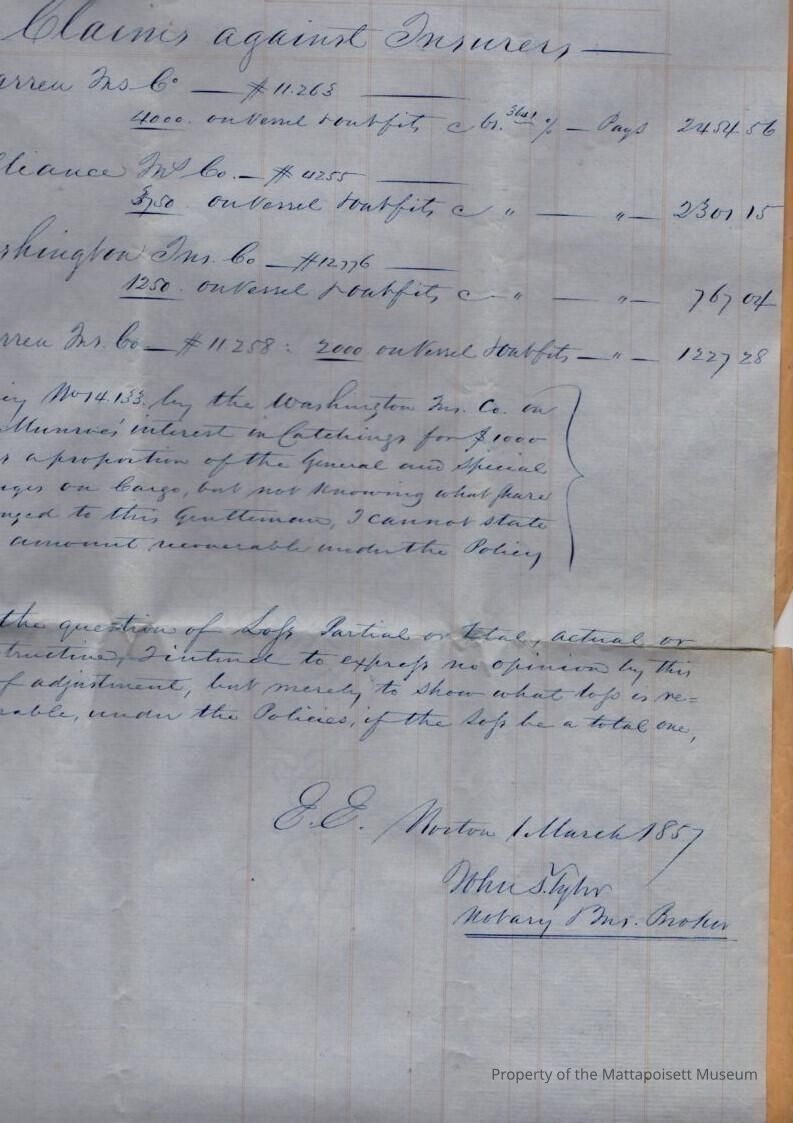 Claims against Insurers
arren Ins Co — $ 11.263
4000. on Vessel & outfits — Pays 2454 56
liance Ins Co. — # 4255
3750. on Vessel & outfits " — " — 2301 15
shington Ins. Co — #12776
1250. on Vessel & outfits " — " — 767 04
rren Ins. Co — # 11258: 2000 on Vessel & outfits — " — 1227 28
icy No 14.133. by the Washington Ins. Co. on
Munroe's interest in Catchings for $1000
s a proportion of the General and Special
ges on Cargo, but not knowing what share
nged to this Gentleman, I cannot state
amount recoverable under the Policy
the question of Loss Partial or total, actual or
tructive, I intend to express no opinion by this
f adjustment, but merely to show what loss is re=
rable, under the Policies, if the Loss be a total one,
E.E. Boston 1 March 1857
John S. Tyler
Notary & Ins. Broker
Property of the Mattapoisett Museum